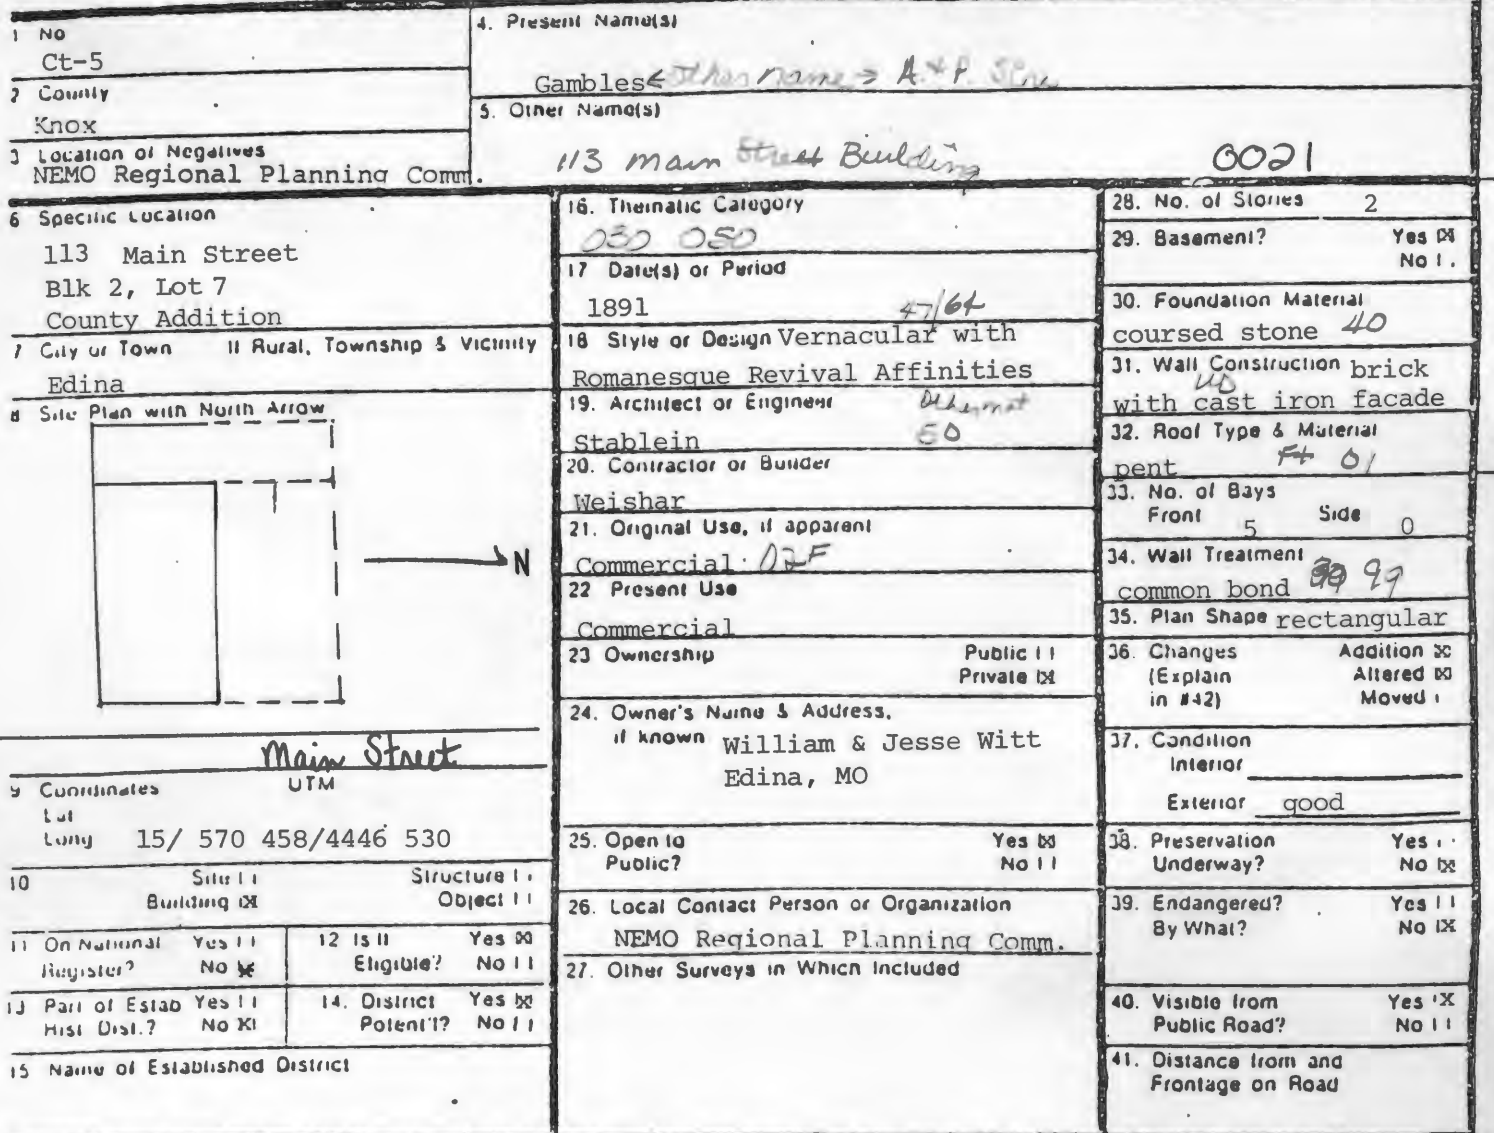 1 No
Ct-5
2 County
Knox
3 Location of Negatives
NEMO Regional Planning Comm.
4. Present Name(s)
Gambles < other name > A. & P. Store
5. Other Name(s)
113 Main Street Building
0021
6 Specific Location
113 Main Street
Blk 2, Lot 7
County Addition
7 City or Town If Rural, Township & Vicinity
Edina
8 Site Plan with North Arrow
N
Main Street
9 Coordinates UTM
Lat
Long 15/ 570 458/4446 530
10 Site [ ] Structure [ ]
Building [X] Object [ ]
11 On National Yes [ ]
Register? No [X]
12 Is It Yes [X]
Eligible? No [ ]
13 Part of Estab Yes [ ]
Hist Dist.? No [X]
14. District Yes [X]
Potent'l? No [ ]
15 Name of Established District
16. Thematic Category
030 050
17 Date(s) or Period
1891 47/64
18 Style or Design Vernacular with
Romanesque Revival Affinities
19. Architect or Engineer
Stablein 50
20. Contractor or Builder
Weishar
21. Original Use, if apparent
Commercial 02F
22 Present Use
Commercial
23 Ownership Public [ ]
Private [X]
24. Owner's Name & Address,
if known William & Jesse Witt
Edina, MO
25. Open to Yes [X]
Public? No [ ]
26. Local Contact Person or Organization
NEMO Regional Planning Comm.
27. Other Surveys in Which Included
28. No. of Stories 2
29. Basement? Yes [X]
No [ ]
30. Foundation Material
coursed stone 40
31. Wall Construction brick
with cast iron facade
32. Roof Type & Material
pent Ft 01
33. No. of Bays
Front 5 Side 0
34. Wall Treatment
common bond 99
35. Plan Shape rectangular
36. Changes Addition [X]
(Explain Altered [X]
in #42) Moved [ ]
37. Condition
Interior
Exterior good
38. Preservation Yes [ ]
Underway? No [X]
39. Endangered? Yes [ ]
By What? No [X]
40. Visible from Yes [X]
Public Road? No [ ]
41. Distance from and
Frontage on Road